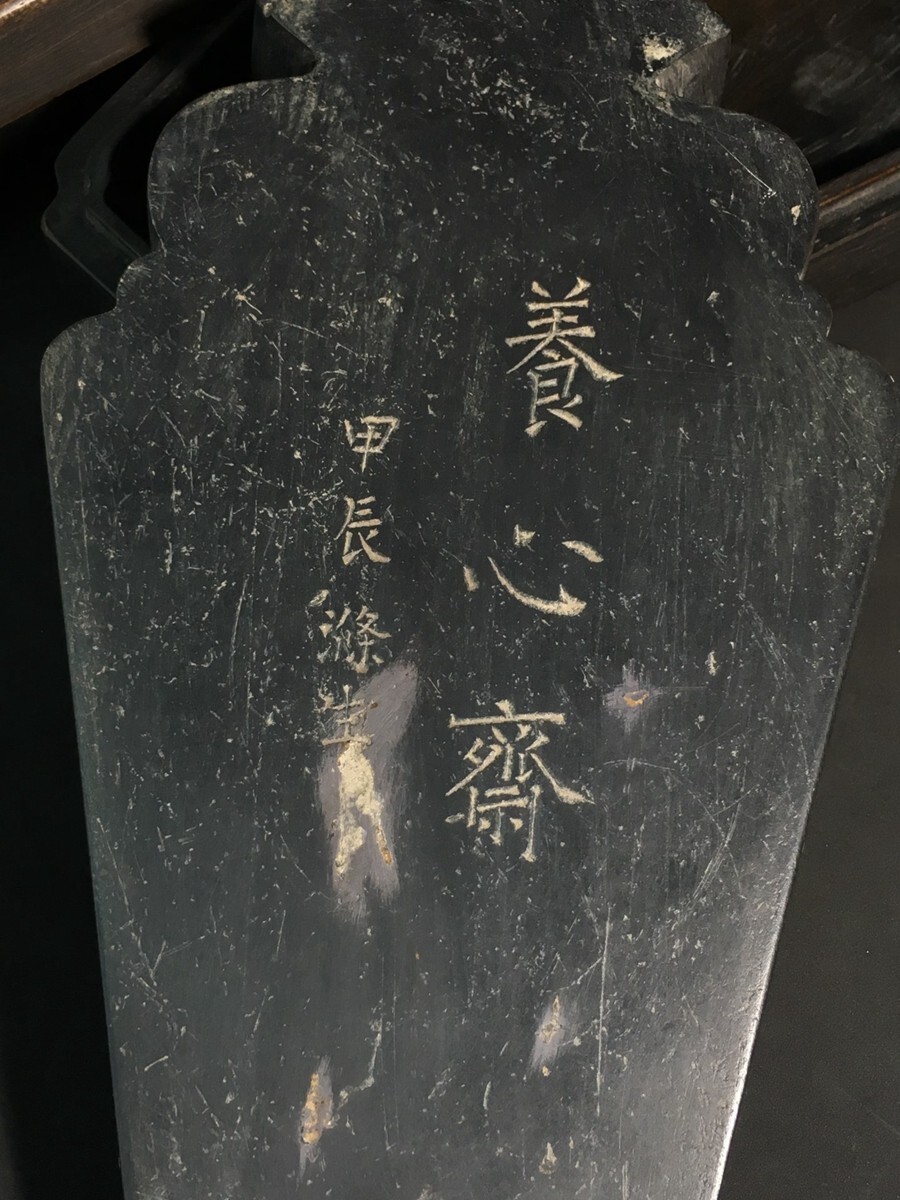 養心齋
甲辰滌生